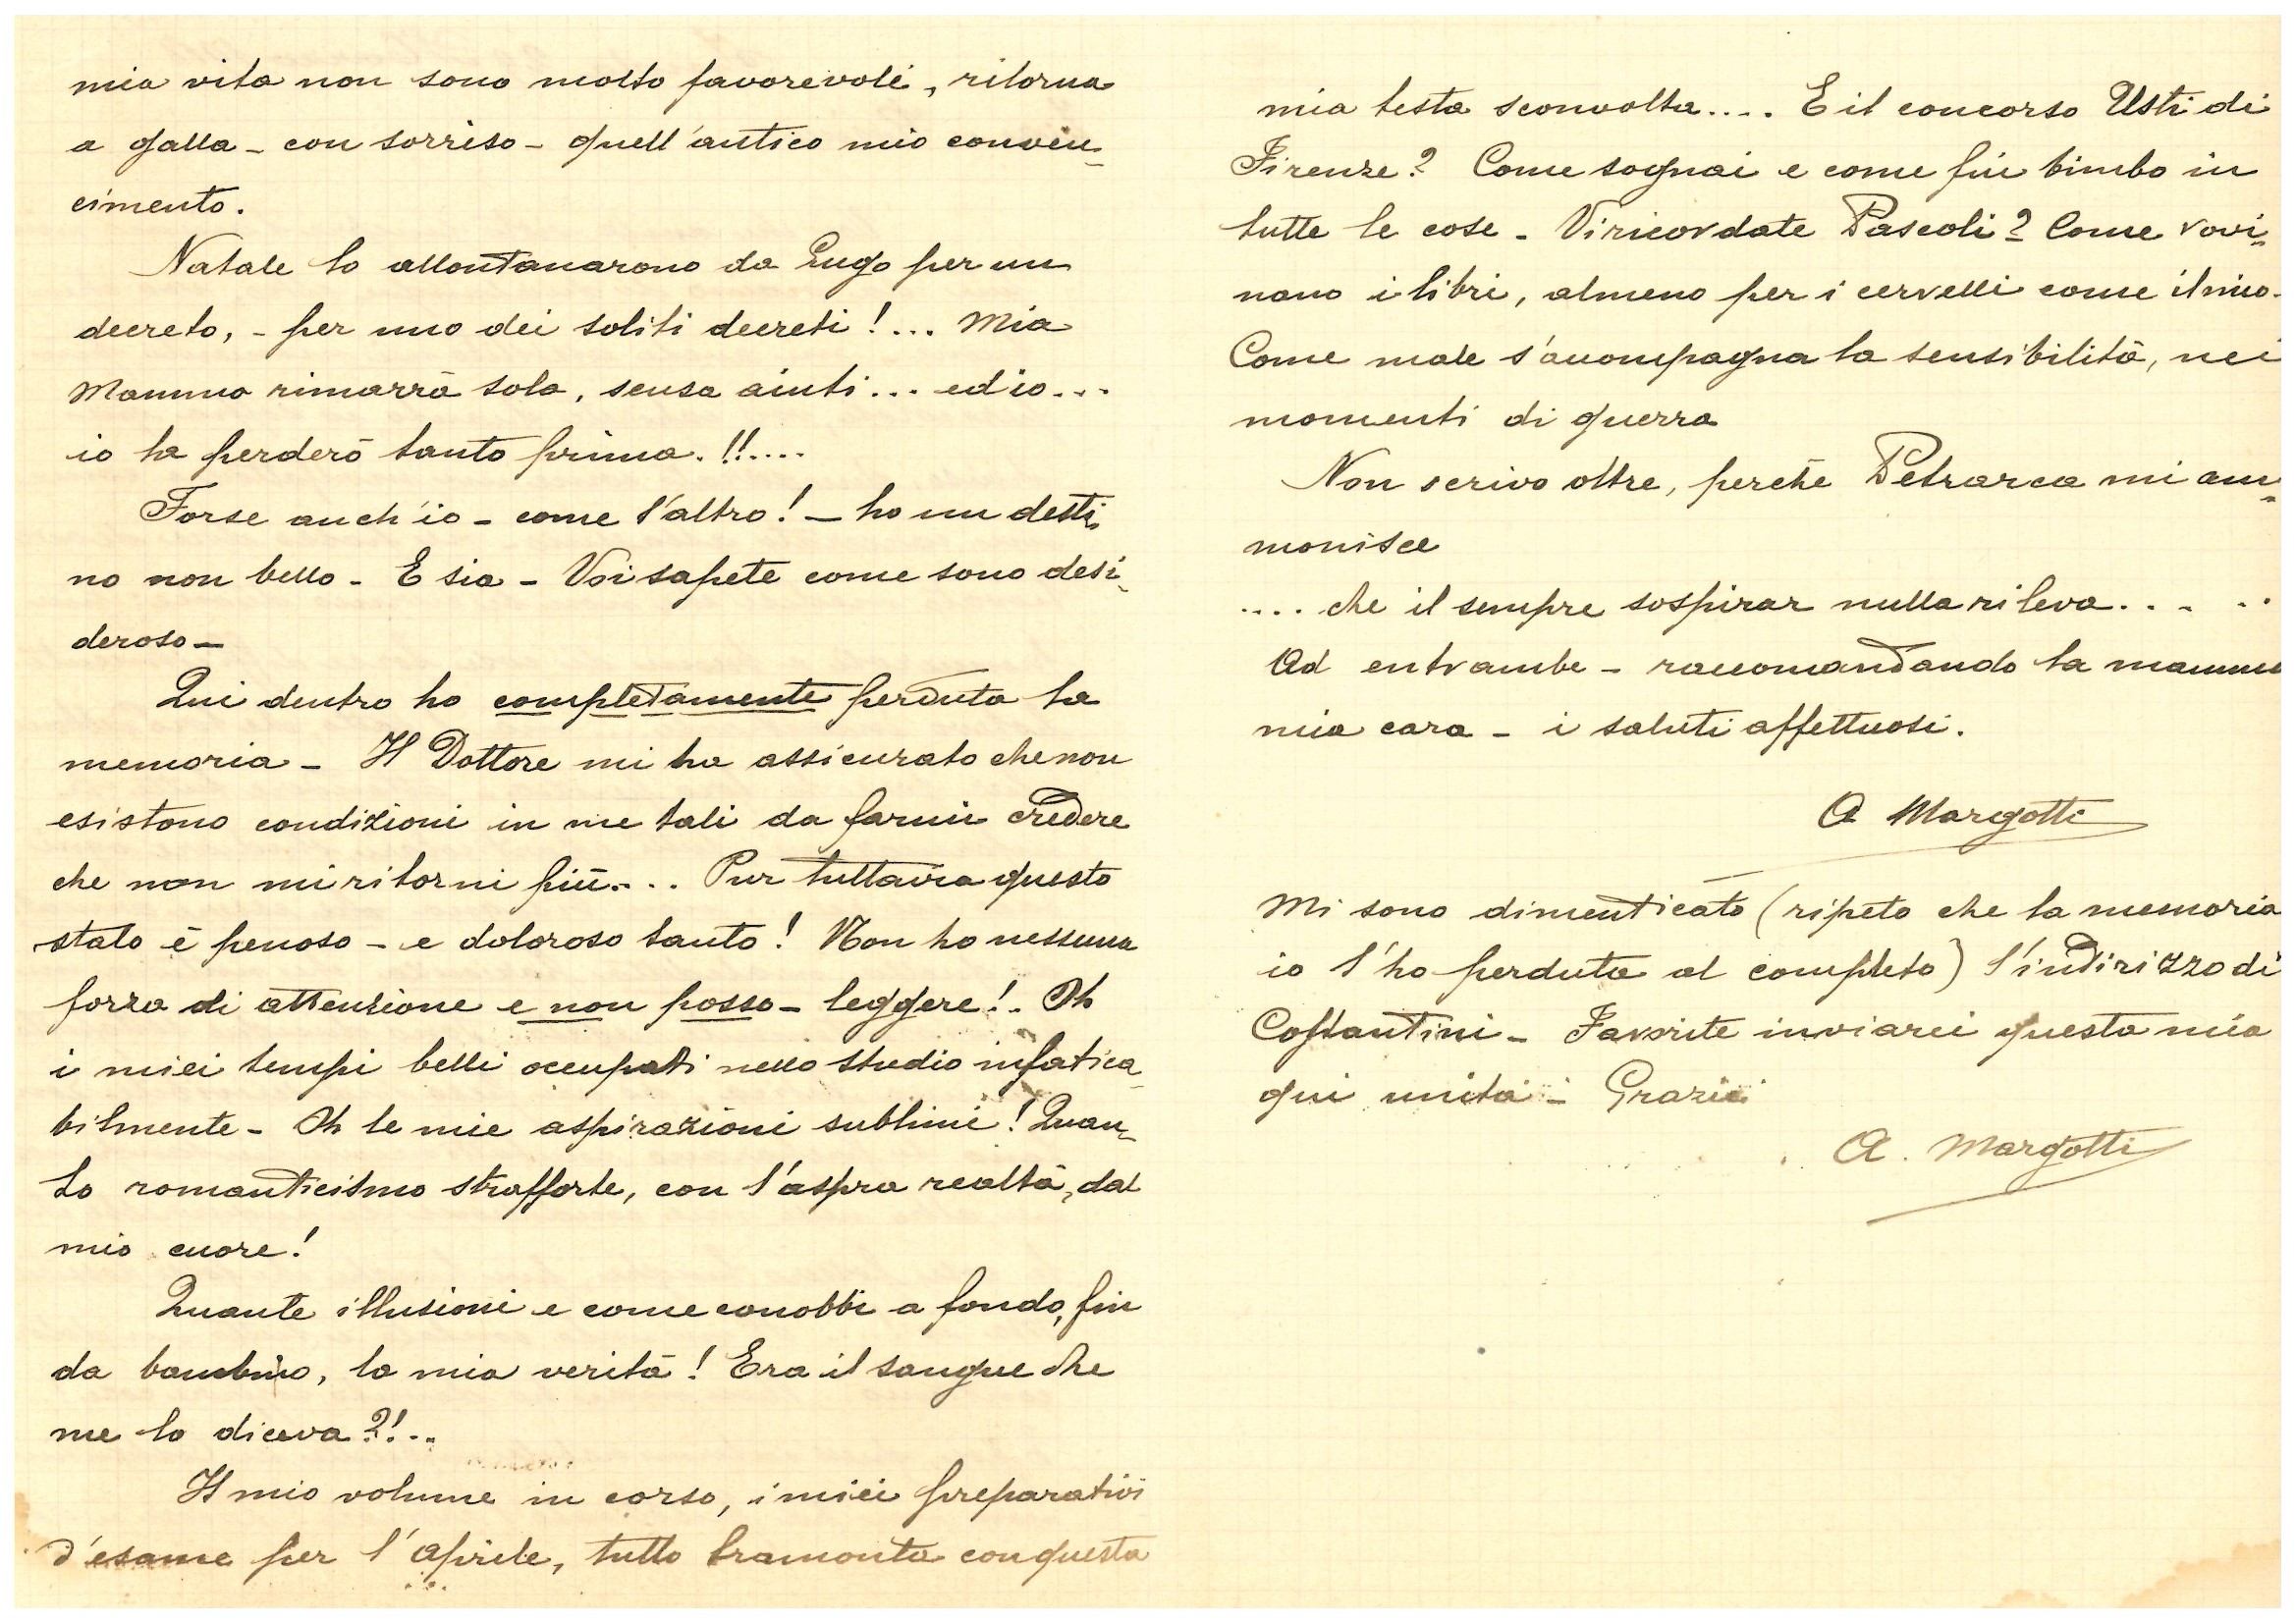 mia vita non sono molto favorevoli, ritorna
a galla - con sorriso - quell'antico mio convin-
cimento.
Natale lo allontanarono da Lugo per un
decreto, - per uno dei soliti decreti!... Mia
Mamma rimarrà sola, senza aiuti... ed io...
io la perderò tanto prima. !!....
Forse anch'io - come l'altro! - ho un desti-
no non bello - E sia - Voi sapete come sono desi-
deroso -
Qui dentro ho completamente perduta la
memoria - Il Dottore mi ha assicurato che non
esistono condizioni in me tali da farmi credere
che non mi ritorni più.... Pur tuttavia questo
stato è penoso - e doloroso tanto! Non ho nessuna
forza di attenzione e non posso - leggere!.. Oh
i miei tempi belli occupati nello studio infatica-
bilmente - Oh le mie aspirazioni sublimi! Quan-
to romanticismo strafforte, con l'aspra realtà, dal
mio cuore!
Quante illusioni e come conobbi a fondo, fin
da bambino, la mia verità! Era il sangue che
me lo diceva?!..
Il mio volume in corso, i miei preparativi
d'esame per l'aprile, tutto tramonta con questa
mia testa sconvolta.... E il concorso Usti di
Firenze? Come sognai e come fui bimbo in
tutte le cose - Vi ricordate Pascoli? Come rovi-
nano i libri, almeno per i cervelli come il mio -
Come male s'accompagna la sensibilità, nei
momenti di guerra
Non scrivo oltre, perchè Petrarca mi am-
monisce
.... che il sempre sospirar nulla rileva.....
Ad entrambe - raccomandando la mamma
mia cara - i saluti affettuosi.
A Margotti
Mi sono dimenticato (ripeto che la memoria
io l'ho perduta al completo) l'indirizzo di
Costantini - Favorite inviarci questa mia
qui unita - Grazie
A. Margotti